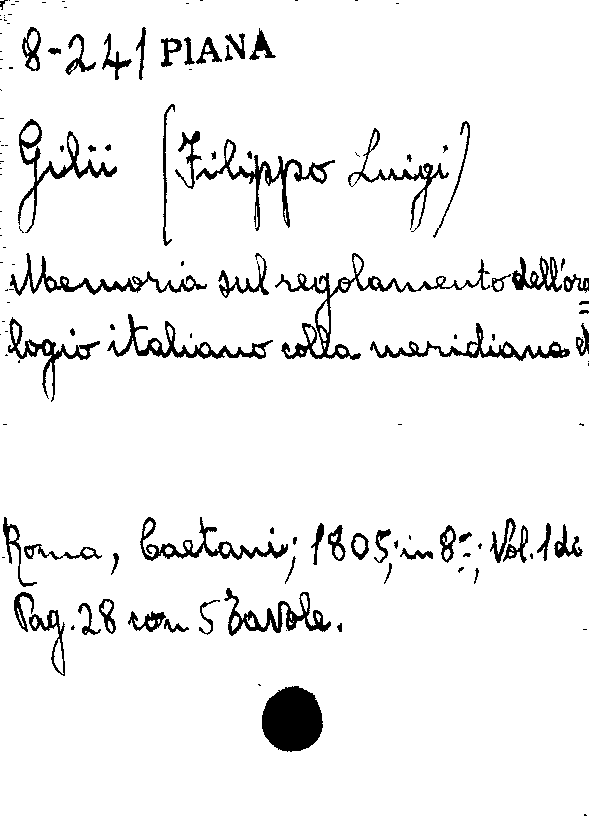 8-241 PIANA
Gilii (Filippo Luigi)
Memoria sul regolamento dell'oro=
logio italiano colla meridiana
Roma, Caetani; 1805; in 8º; Vol. 1 di
Pag. 28 con 5 Tavole.